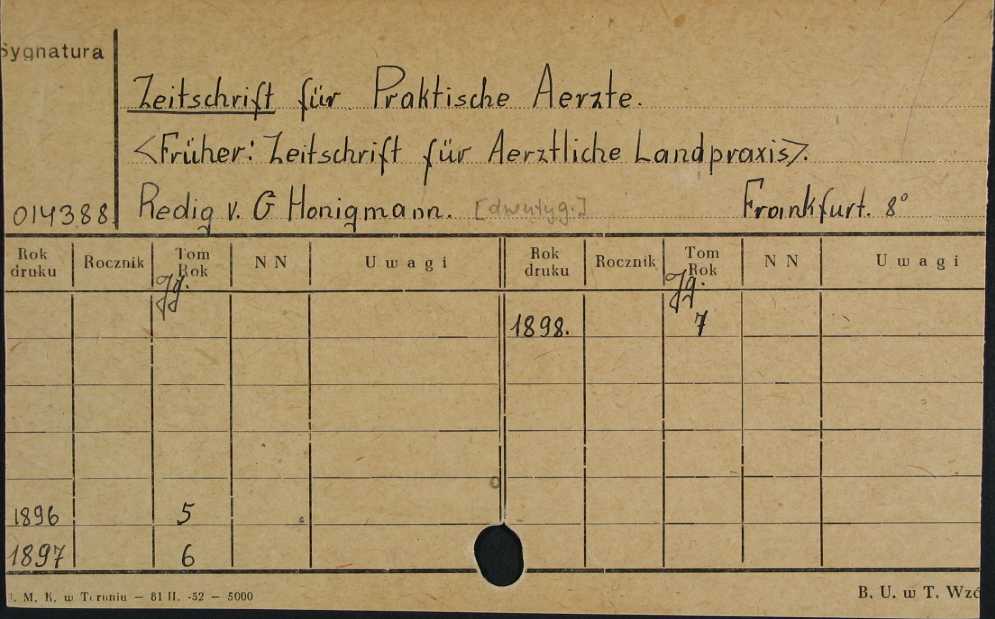 Sygnatura
Zeitschrift für Praktische Aerzte.
<Früher: Zeitschrift für Aerztliche Landpraxis>.
014388. Redig v. G Honigmann. [dwutyg.] Frankfurt. 8°
Rok druku Rocznik Tom Rok NN Uwagi Rok druku Rocznik Tom Rok NN Uwagi
Jg. Jg.
1898. 7
1896 5
1897 6
M. K. w Toruniu — 81 II. -52 — 5000 B. U. w T. Wzó